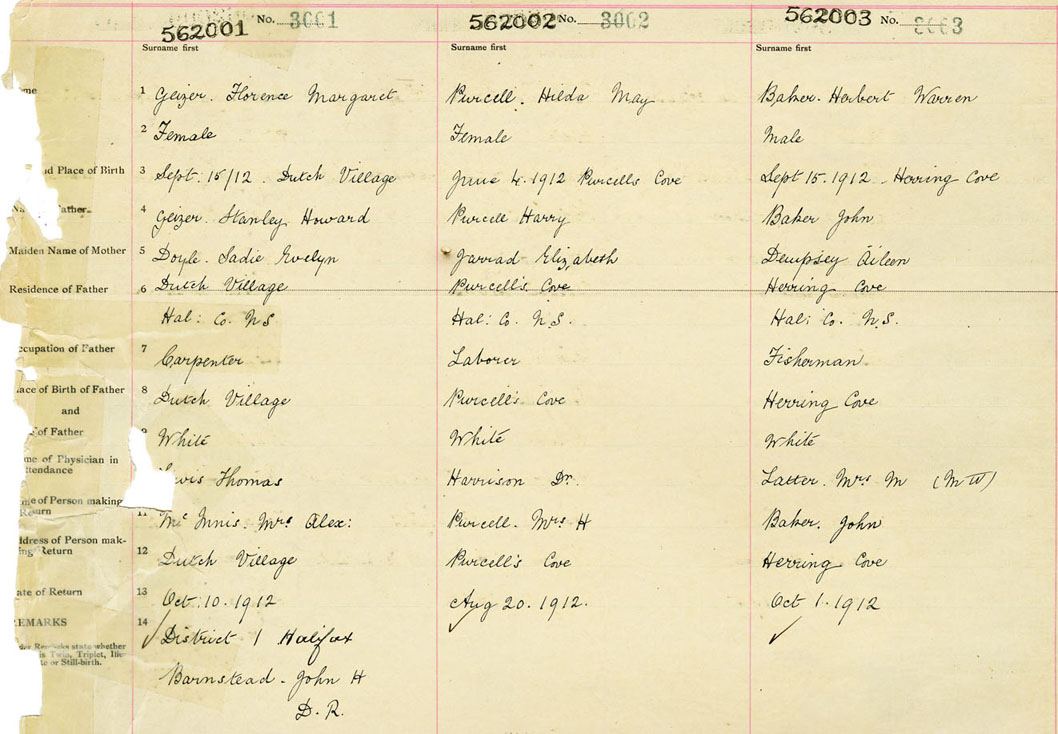 562001 No. 3001
562002 No. 3002
562003 No. 3003
Surname first
Surname first
Surname first
1 Geizer. Florence Margaret
Purcell. Hilda May
Baker. Herbert Warren
2 Female
Female
Male
Place of Birth
3 Sept. 15/12. Dutch Village
June 4. 1912 Purcells Cove
Sept 15. 1912 Herring Cove
4 Geizer. Stanley Howard
Purcell Harry
Baker John
Maiden Name of Mother
5 Doyle. Sadie Evelyn
Jarrad Elizabeth
Dempsey Aileen
Residence of Father
6 Dutch Village
Purcell's Cove
Herring Cove
Hal: Co. N S
Hal: Co. N.S.
Hal: Co. N.S.
ccupation of Father
7 Carpenter
Laborer
Fisherman
ace of Birth of Father
and
of Father
8 Dutch Village
Purcell's Cove
Herring Cove
White
White
White
me of Physician in
ttendance
Thomas
Harrison Dr.
Latter. Mrs M (M W)
me of Person making
11 Mc Innis. Mrs Alex:
Purcell. Mrs H
Baker. John
ddress of Person mak-
ing Return
12 Dutch Village
Purcell's Cove
Herring Cove
ate of Return
13 Oct. 10. 1912
Aug 20. 1912.
Oct 1. 1912
EMARKS
state whether
is Twin, Triplet, Ille-
te or Still-birth.
14 District 1 Halifax
Barnstead - John H
D. R.